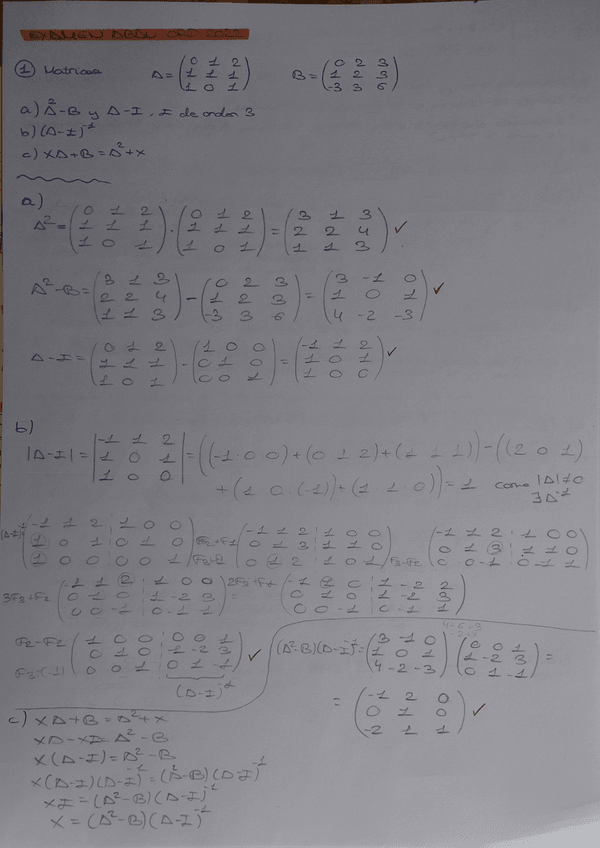 EXAMEN ABAU ORD 2022
① Matrices A=(0 1 2; 1 1 1; 1 0 1) B=(0 2 3; 1 2 3; -3 3 6)
a) A²-B y A-I, I de orden 3
b) (A-I)⁻¹
c) XA+B=A²+X
a)
A²=(0 1 2; 1 1 1; 1 0 1)·(0 1 2; 1 1 1; 1 0 1)=(3 1 3; 2 2 4; 1 1 3) ✓
A²-B=(3 1 3; 2 2 4; 1 1 3)-(0 2 3; 1 2 3; -3 3 6)=(3 -1 0; 1 0 1; 4 -2 -3) ✓
A-I=(0 1 2; 1 1 1; 1 0 1)-(1 0 0; 0 1 0; 0 0 1)=(-1 1 2; 1 0 1; 1 0 0) ✓
b)
|A-I|=|-1 1 2; 1 0 1; 1 0 0|=((-1·0 0)+(0 1 2)+(1 1 1))-((2 0 1)
+(1 0 (-1))+(1 1 0))=1 como |A|≠0
∃A⁻¹
(A-I) (-1 1 2 | 1 0 0; 1 0 1 | 0 1 0; 1 0 0 | 0 0 1) F2+F1 (-1 1 2 | 1 0 0; 0 1 3 | 1 1 0; 0 1 2 | 1 0 1) F3-F2 (-1 1 2 | 1 0 0; 0 1 3 | 1 1 0; 0 0 -1 | 0 -1 1)
3F3+F2 (-1 1 2 | 1 0 0; 0 1 0 | 1 -2 3; 0 0 -1 | 0 -1 1) 2F3+F1 (-1 1 0 | 1 -2 2; 0 1 0 | 1 -2 3; 0 0 -1 | 0 -1 1)
F2-F1 (1 0 0 | 0 0 1; 0 1 0 | 1 -2 3; 0 0 1 | 0 1 -1) ✓
F3·(-1)
(A-I)⁻¹
(A²-B)(A-I)⁻¹=(3 -1 0; 1 0 1; 4 -2 -3)(0 0 1; 1 -2 3; 0 1 -1)=
=(-1 2 0; 0 1 0; -2 1 1) ✓
c) XA+B=A²+X
XA-XI=A²-B
X(A-I)=A²-B
X(A-I)(A-I)⁻¹=(A²-B)(A-I)⁻¹
XI=(A²-B)(A-I)⁻¹
X=(A²-B)(A-I)⁻¹